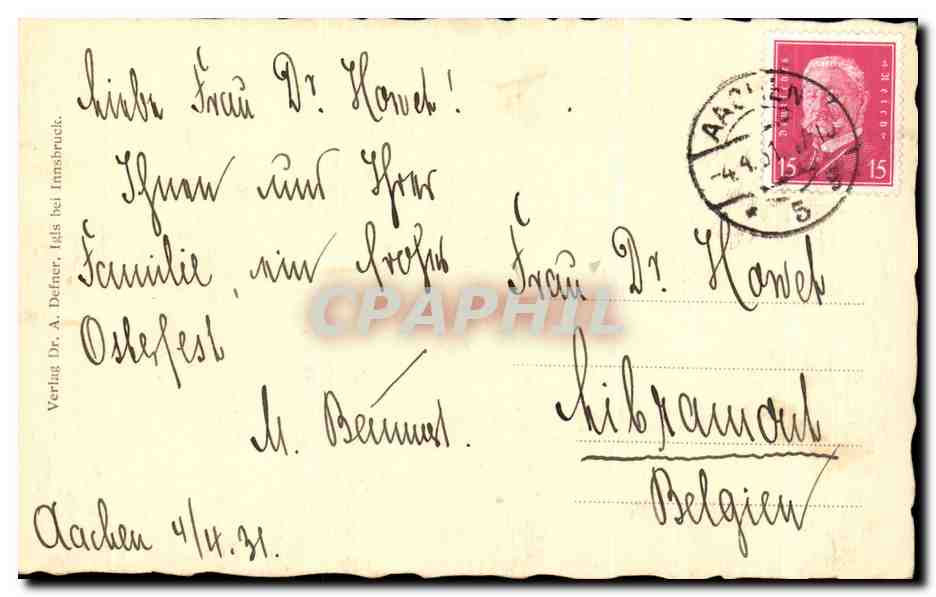 Liebe Frau Dr. Hawet!
Ihnen und Ihrer
Familie, ein frohes
Osterfest
M.
Aachen 4/4.31.
Frau Dr. Hawet
Libramont
Belgien
Verlag Dr. A. Defner, Igls bei Innsbruck.
Deutsches Reich
15 15
AACHEN
-4.4.31
* 5
CPAPHIL